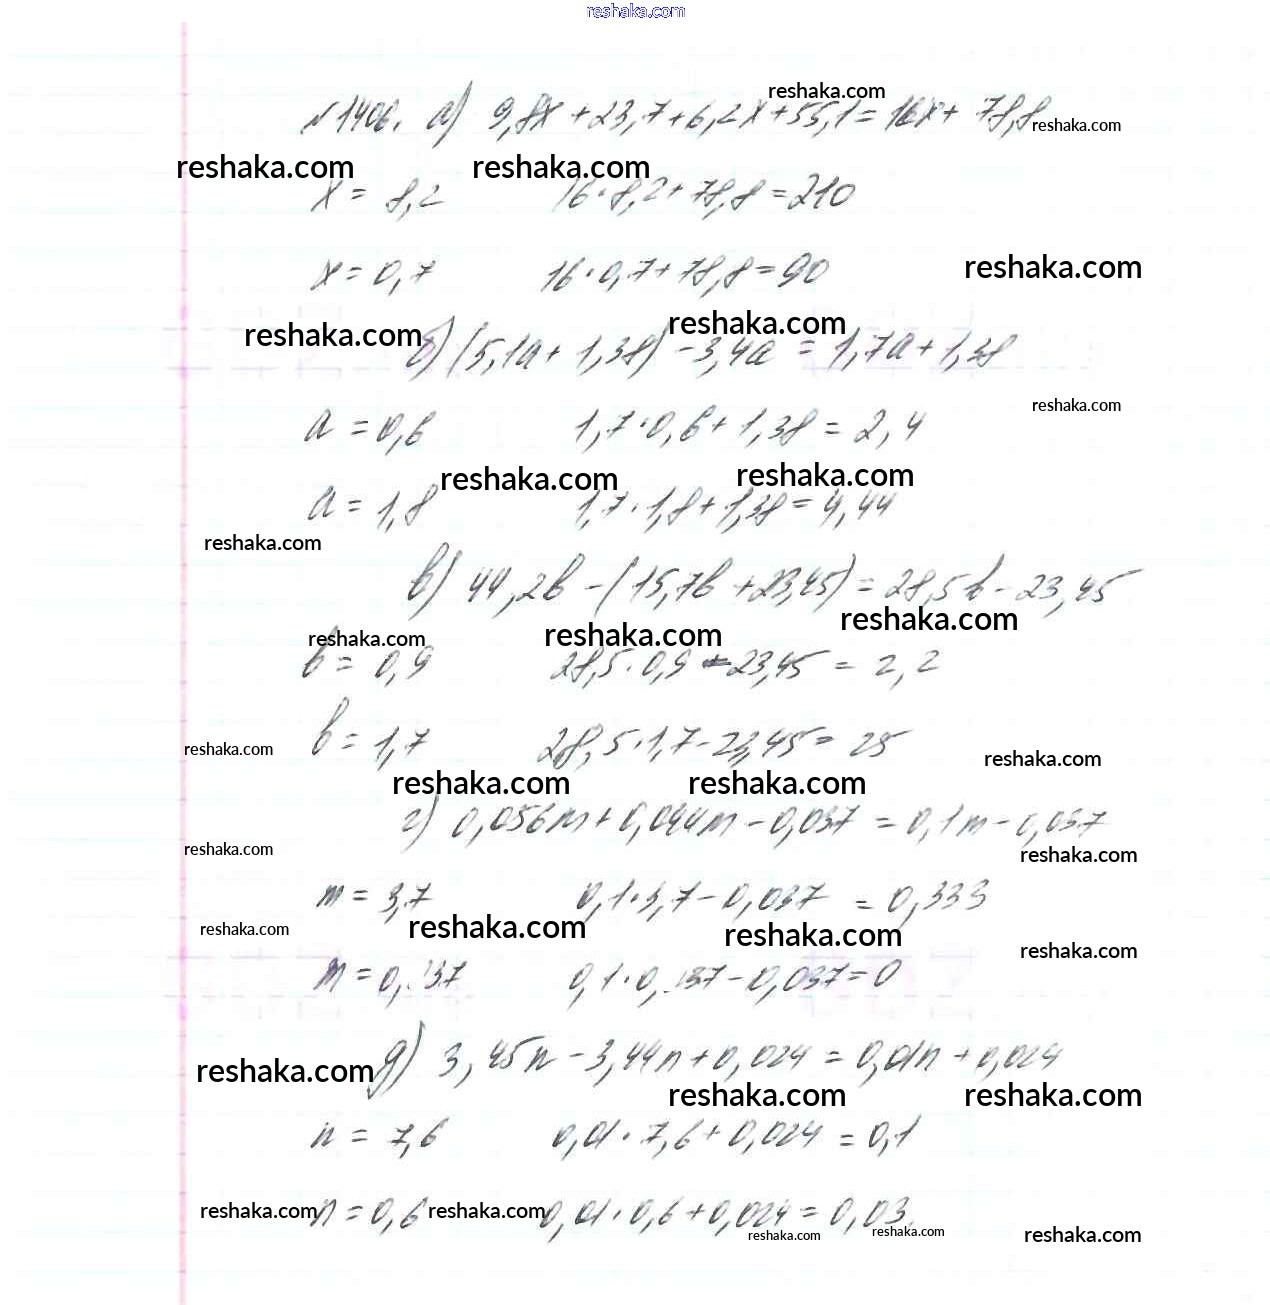 reshaka.com
reshaka.com
№1406. а) 9,8x + 23,7 + 6,2x + 55,1 = 16x + 78,8
reshaka.com
reshaka.com reshaka.com
x = 8,2 16·8,2 + 78,8 = 210
x = 0,7 16·0,7 + 78,8 = 90
reshaka.com
reshaka.com reshaka.com
б) (5,1a + 1,38) - 3,4a = 1,7a + 1,38
reshaka.com
a = 0,6 1,7·0,6 + 1,38 = 2,4
reshaka.com reshaka.com
a = 1,8 1,7·1,8 + 1,38 = 4,44
reshaka.com
в) 44,2b - (15,7b + 23,45) = 28,5b - 23,45
reshaka.com reshaka.com reshaka.com
b = 0,9 28,5·0,9 - 23,45 = 2,2
b = 1,7 28,5·1,7 - 23,45 = 25
reshaka.com reshaka.com
reshaka.com reshaka.com
г) 0,056m + 0,044m - 0,037 = 0,1m - 0,037
reshaka.com reshaka.com
m = 3,7 0,1·3,7 - 0,037 = 0,333
reshaka.com reshaka.com reshaka.com
reshaka.com
m = 0,37 0,1·0,37 - 0,037 = 0
д) 3,45n - 3,44n + 0,024 = 0,01n + 0,024
reshaka.com reshaka.com reshaka.com
n = 7,6 0,01·7,6 + 0,024 = 0,1
n = 0,6 0,01·0,6 + 0,024 = 0,03.
reshaka.com reshaka.com
reshaka.com reshaka.com reshaka.com